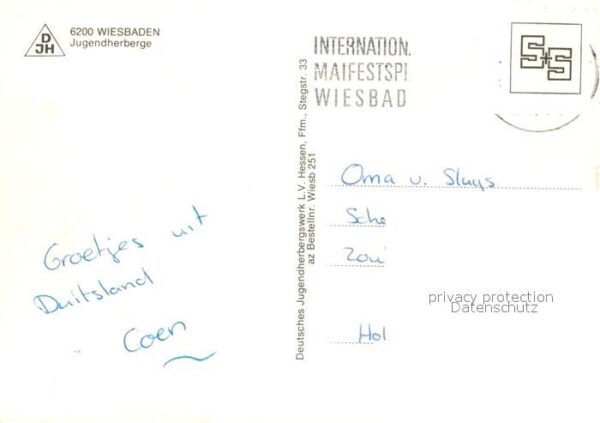 DJH
6200 WIESBADEN
Jugendherberge
INTERNATION.
MAIFESTSPI
WIESBAD
S+S
Groetjes uit
Duitsland
Coen
Deutsches Jugendherbergswerk L.V. Hessen, Ffm., Stegstr. 33
az Bestellnr. Wiesb 251
Oma v. Sluys
Sche
Zoui
Hol
privacy protection
Datenschutz